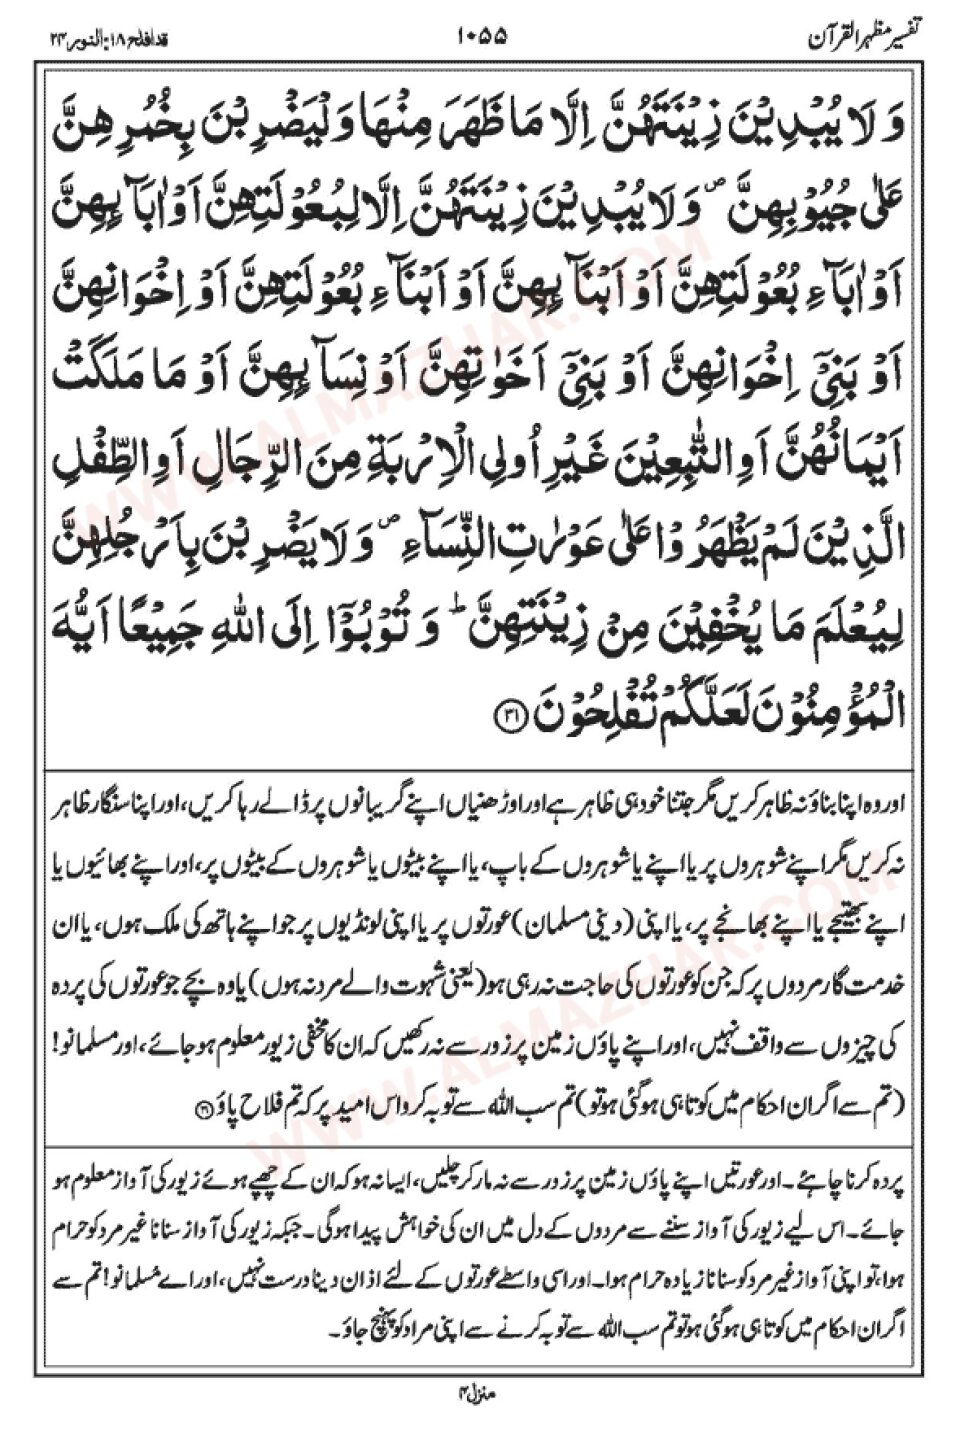 تفسیر مظہر القرآن
۱۰۵۵
قد افلح ۱۸: النور ۲۴
وَلَا يُبْدِيْنَ زِيْنَتَهُنَّ اِلَّا مَا ظَهَرَ مِنْهَا وَلْيَضْرِبْنَ بِخُمُرِهِنَّ
عَلٰى جُيُوْبِهِنَّ ۖ وَلَا يُبْدِيْنَ زِيْنَتَهُنَّ اِلَّا لِبُعُوْلَتِهِنَّ اَوْ اٰبَآئِهِنَّ
اَوْ اٰبَآءِ بُعُوْلَتِهِنَّ اَوْ اَبْنَآئِهِنَّ اَوْ اَبْنَآءِ بُعُوْلَتِهِنَّ اَوْ اِخْوَانِهِنَّ
اَوْ بَنِيْۤ اِخْوَانِهِنَّ اَوْ بَنِيْۤ اَخَوٰتِهِنَّ اَوْ نِسَآئِهِنَّ اَوْ مَا مَلَكَتْ
اَيْمَانُهُنَّ اَوِ التّٰبِعِيْنَ غَيْرِ اُولِي الْاِرْبَةِ مِنَ الرِّجَالِ اَوِ الطِّفْلِ
الَّذِيْنَ لَمْ يَظْهَرُوْا عَلٰى عَوْرٰتِ النِّسَآءِ ۖ وَلَا يَضْرِبْنَ بِاَرْجُلِهِنَّ
لِيُعْلَمَ مَا يُخْفِيْنَ مِنْ زِيْنَتِهِنَّ ؕ وَتُوْبُوْۤا اِلَى اللّٰهِ جَمِيْعًا اَيُّهَ
الْمُؤْمِنُوْنَ لَعَلَّكُمْ تُفْلِحُوْنَ ۳۱
اور وہ اپنا بناؤ نہ ظاہر کریں مگر جتنا خود ہی ظاہر ہے اور اوڑھنیاں اپنے گریبانوں پر ڈالے رہا کریں، اور اپنا سنگار ظاہر
نہ کریں مگر اپنے شوہروں پر یا اپنے یا شوہروں کے باپ، یا اپنے بیٹوں یا شوہروں کے بیٹوں پر، اور اپنے بھائیوں یا
اپنے بھتیجے یا اپنے بھانجے پر، یا اپنی (دینی مسلمان) عورتوں پر یا اپنی لونڈیوں پر جو اپنے ہاتھ کی ملک ہوں، یا ان
خدمت گار مردوں پر کہ جن کو عورتوں کی حاجت نہ رہی ہو (یعنی شہوت والے مرد نہ ہوں) یا وہ بچے جو عورتوں کی پردہ
کی چیزوں سے واقف نہیں، اور اپنے پاؤں زمین پر زور سے نہ رکھیں کہ ان کا مخفی زیور معلوم ہو جائے، اور مسلمانو!
(تم سے اگر ان احکام میں کوتاہی ہو گئی ہو تو) تم سب اللہ سے توبہ کرو اس امید پر کہ تم فلاح پاؤ ۳۱
پردہ کرنا چاہئے۔ اور عورتیں اپنے پاؤں زمین پر زور سے نہ مار کر چلیں، ایسا نہ ہو کہ ان کے چھپے ہوئے زیور کی آواز معلوم ہو
جائے۔ اس لیے زیور کی آواز سننے سے مردوں کے دل میں ان کی خواہش پیدا ہو گی۔ جبکہ زیور کی آواز سنانا غیر مرد کو حرام
ہوا، تو اپنی آواز غیر مرد کو سنانا زیادہ حرام ہوا۔ اور اسی واسطے عورتوں کے لئے اذان دینا درست نہیں، اور اے مسلمانو! تم سے
اگر ان احکام میں کوتاہی ہو گئی ہو تو تم سب اللہ سے توبہ کرنے سے اپنی مراد کو پہنچ جاؤ۔
منزل ۴
WWW.ALMAZHAR.COM
WWW.ALMAZHAR.COM